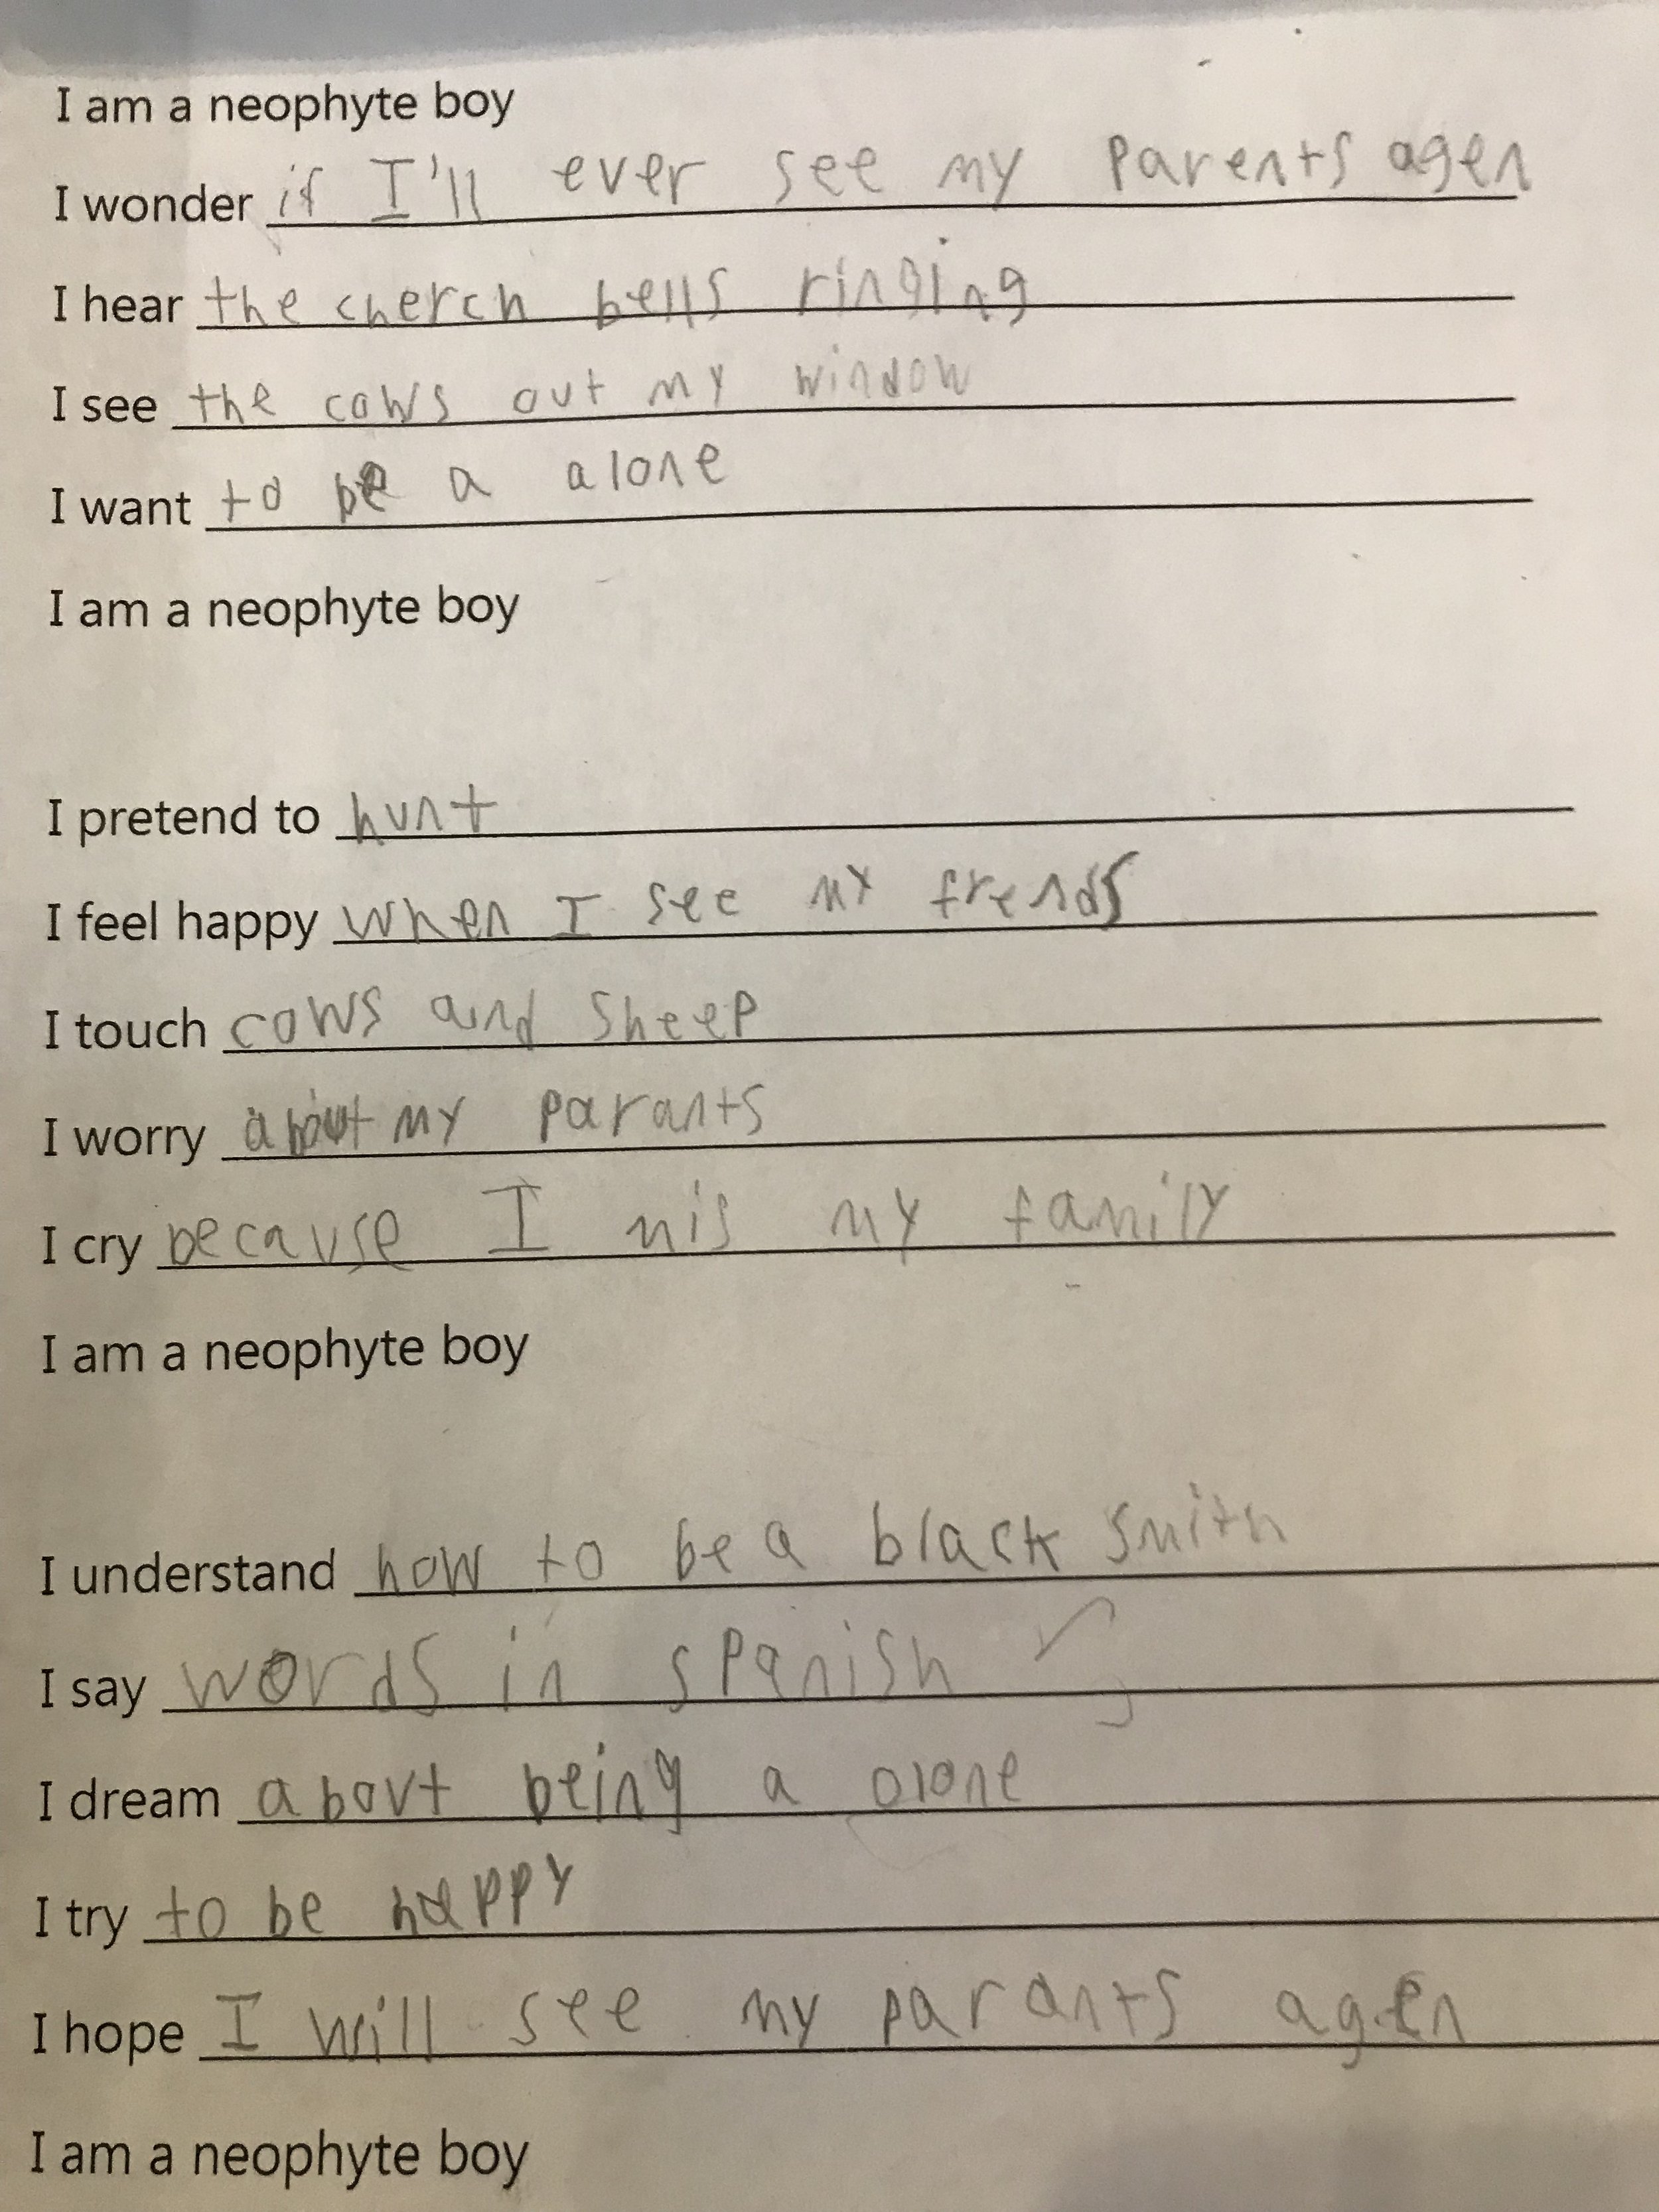 I am a neophyte boy
I wonder if I'll ever see my parents agen
I hear the cherch bells ringing
I see the cows out my window
I want to be a alone
I am a neophyte boy
I pretend to hunt
I feel happy when I see my frends
I touch cows and sheep
I worry about my parants
I cry because I mis my family
I am a neophyte boy
I understand how to be a black smith
I say words in spanish
I dream about being a olone
I try to be happy
I hope I will see my parants agen
I am a neophyte boy